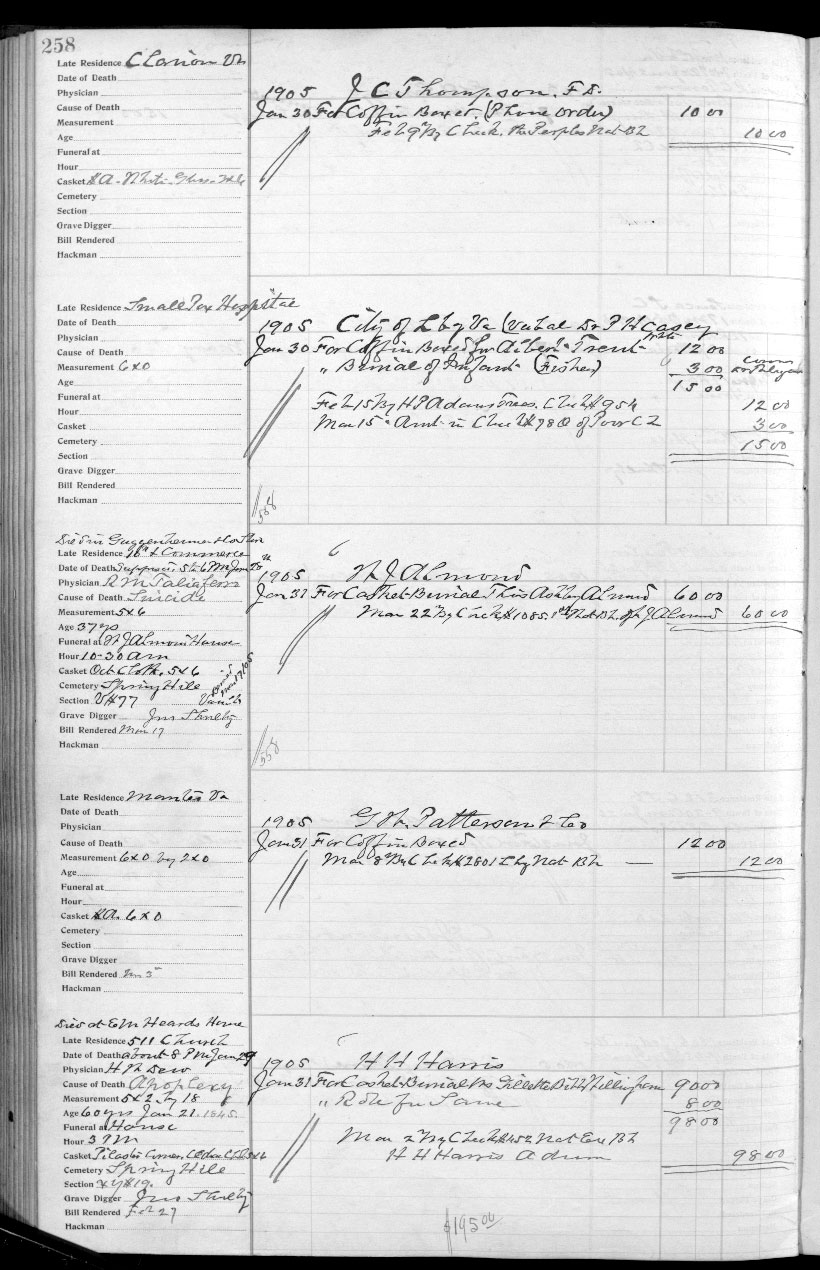 258
Late Residence Clarion Va
Date of Death
Physician
Cause of Death
Measurement
Age
Funeral at
Hour
Casket White
Cemetery
Section
Grave Digger
Bill Rendered
Hackman
1905 J C Thompson. F D.
Jan 30 For Coffin Box et. (Phone Order) 10 00
Feb 9" By Check. Peoples Nat Bk 10 00
Late Residence Small Pox Hospital
Date of Death
Physician
Cause of Death
Measurement 6x0
Age
Funeral at
Hour
Casket
Cemetery
Section
Grave Digger
Bill Rendered
Hackman
1905 City of Lbg Va (Verbal Dr P H Casey
Jan 30 For Coffin Boxed for Albert Trent 12 00
" Burial of Infant (Fisher) 3 00
15 00
Feb 15 By H P Adams Treas. Check # 954 12 00
Mar 15 " Amt in Check # 780 of Poor 3 00
15 00
558
Died in Guggenheimer
Late Residence 9th & Commerce
Date of Death Suppose. 5 to 6 PM Jan 20
Physician R M Taliaferro
Cause of Death Suicide
Measurement 5x6
Age 37 yrs
Funeral at W J Almond House
Hour 10-30 am
Casket Oct Cloth. 5x6
Cemetery Spring Hill
Section V#77 Vault
Grave Digger Jno Shelby
Bill Rendered Mar 17
Hackman
1905 W J Almond
Jan 31 For Casket Burial Thos Ashby Almond 60 00
Mar 22" By Check # 1085. 1st Nat Bk. of W J Almond 60 00
558
Late Residence Manteo Va
Date of Death
Physician
Cause of Death
Measurement 6x0 by 2x0
Age
Funeral at
Hour
Casket 6x0
Cemetery
Section
Grave Digger
Bill Rendered
Hackman
1905 G W. Patterson & Co
Jan 31 For Coffin Boxed 12 00
Mar 8" By Check # 2801 Lbg Nat Bk 12 00
Died at E M Heards Home
Late Residence 511 Church
Date of Death about 8 PM Jan 29
Physician H W Dew
Cause of Death Apoplexy
Measurement 5x2 by 18
Age 60 yrs Jan 21. 1845.
Funeral at House
Hour 3 PM
Casket Pilaster Corner. 5x6
Cemetery Spring Hill
Section
Grave Digger Jno Shelby
Bill Rendered Feb 27
Hackman
1905 H H Harris
Jan 31 For Casket Burial Mrs 90 00
" Robe for Same 8 00
98 00
Mar 2" By Check # 452 Nat Ex Bk
H H Harris Adm 98 00
$195 00